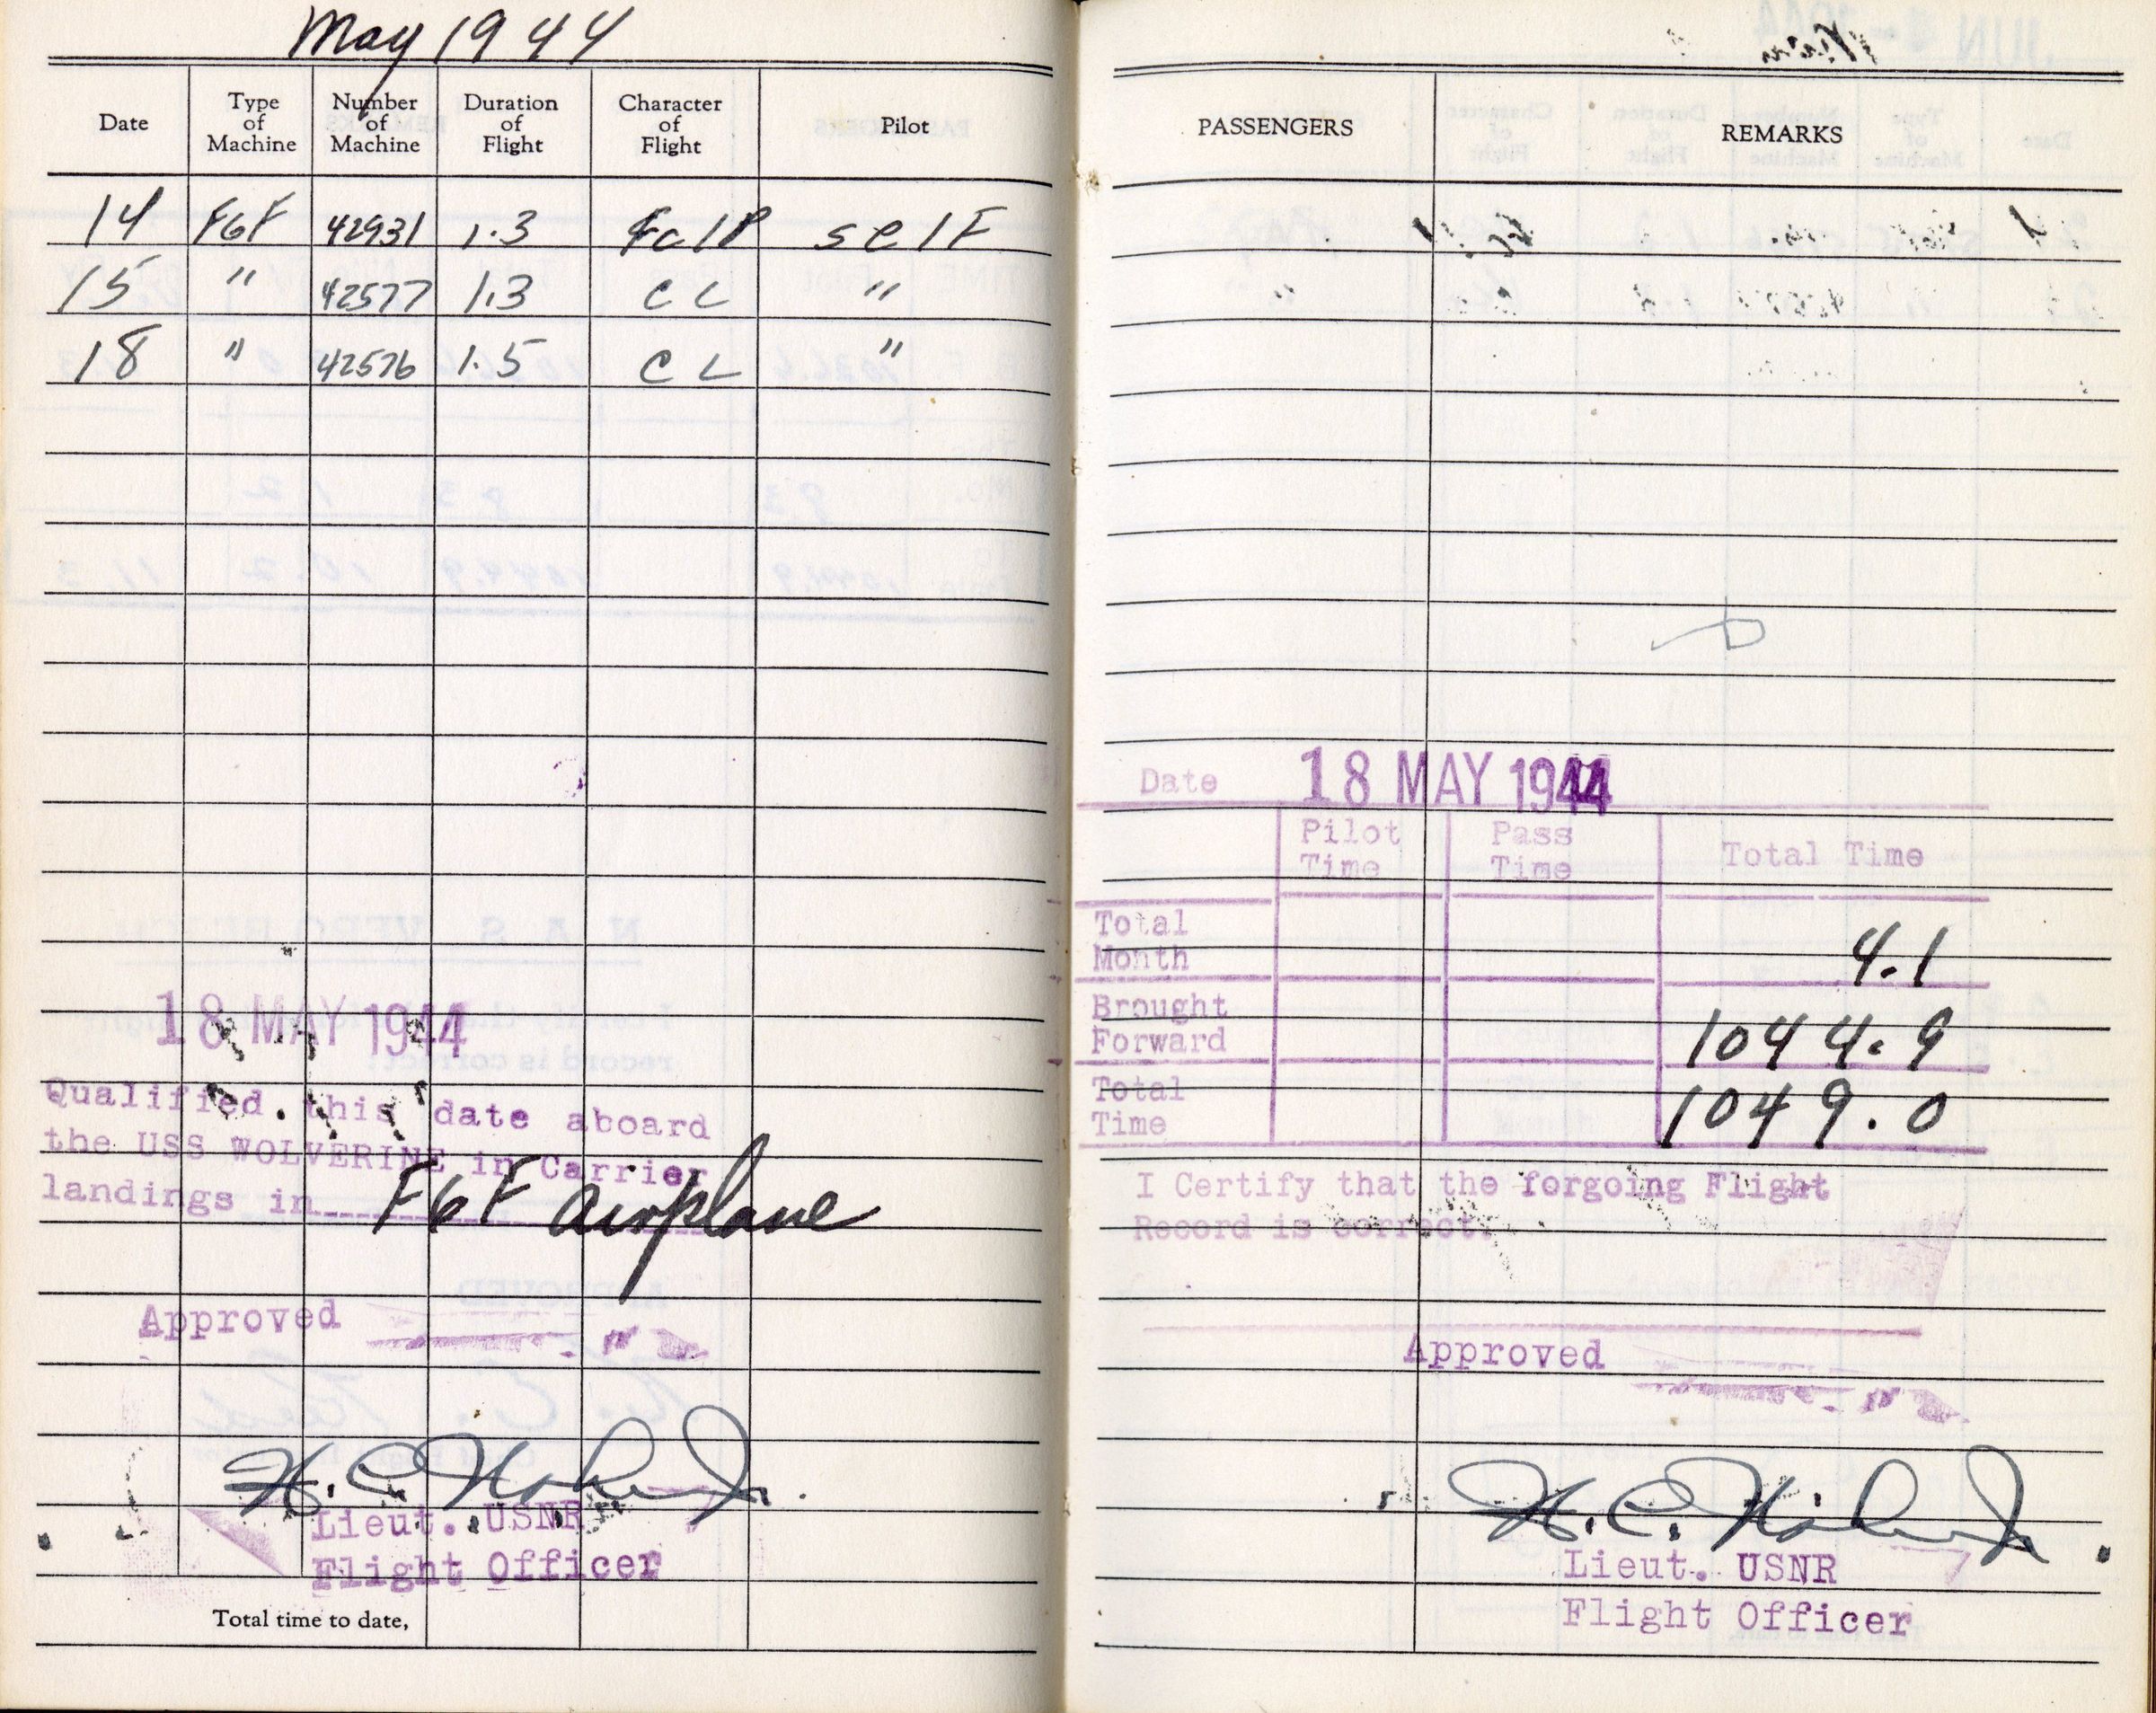 May 1944
Date Type of Machine Number of Machine Duration of Flight Character of Flight Pilot
14 F6F 42931 1.3 FclP self
15 " 42577 1.3 CL "
18 " 42576 1.5 CL "
18 MAY 1944
Qualified this date aboard
the USS WOLVERINE in Carrier
landings in F6F airplane
Approved
H. C.
Lieut. USNR
Flight Officer
Total time to date,
PASSENGERS REMARKS
Date 18 MAY 1944
Pilot Time Pass Time Total Time
Total Month 4.1
Brought Forward 1044.9
Total Time 1049.0
I Certify that the forgoing Flight
Record is correct.
Approved
H. C.
Lieut. USNR
Flight Officer